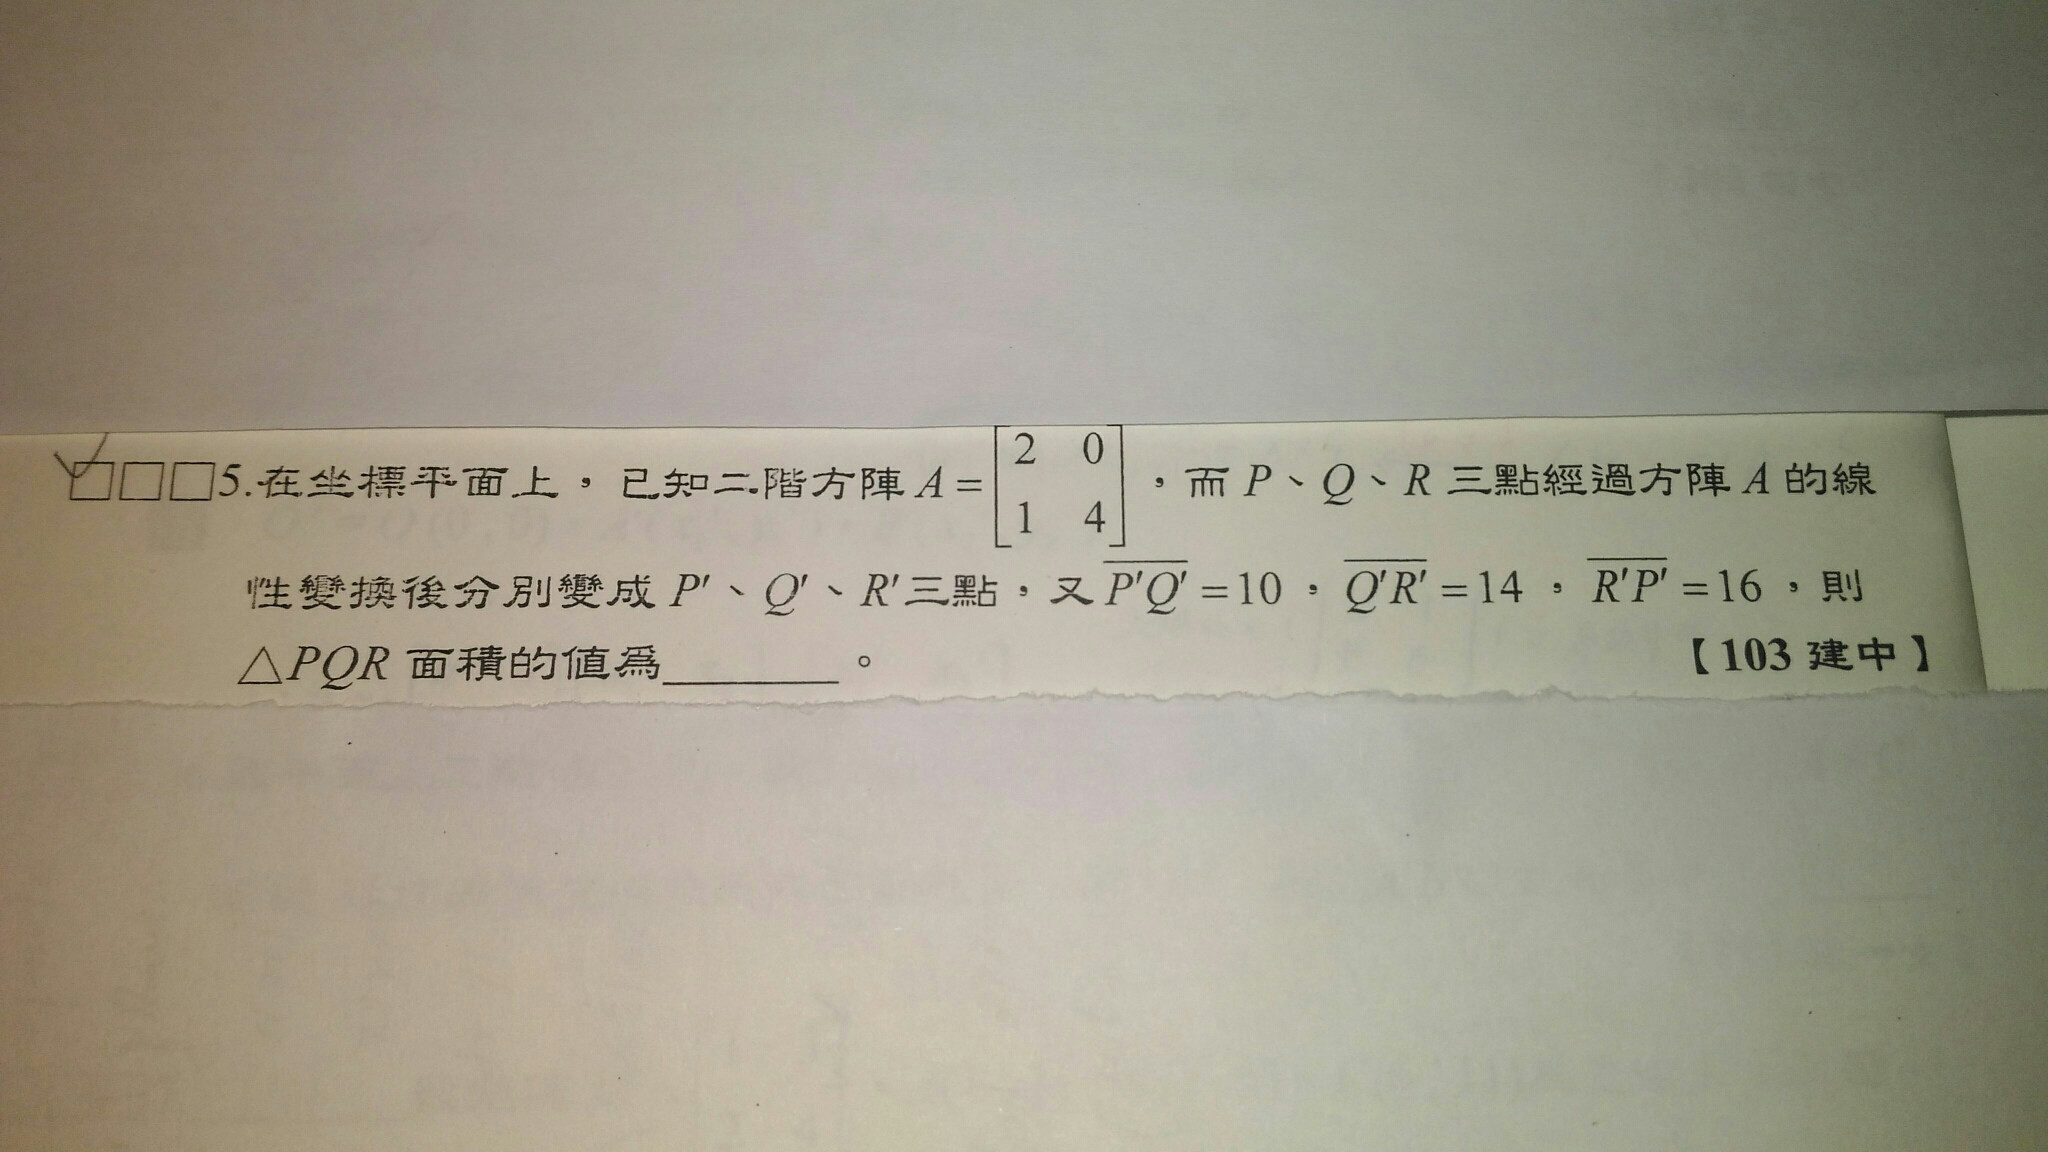 □□□5.在坐標平面上，已知二階方陣 A = [2 0
1 4]，而 P、Q、R 三點經過方陣 A 的線
性變換後分別變成 P′、Q′、R′三點，又 P′Q′ = 10，Q′R′ = 14，R′P′ = 16，則
△PQR 面積的值爲________。 【103 建中】